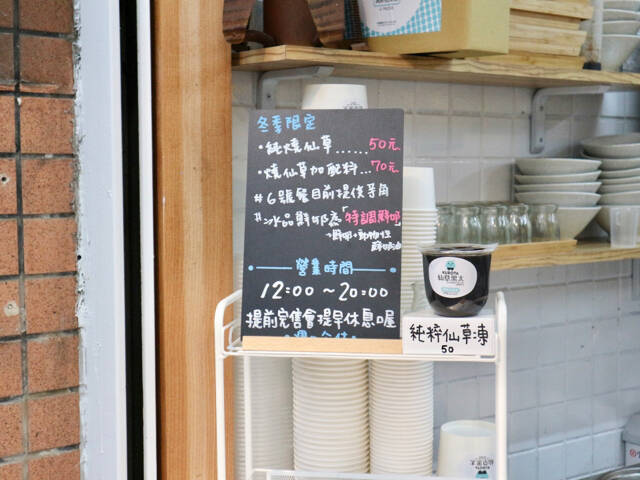 冬季限定
·純燒仙草......50元
·燒仙草加配料...70元
#6號餐目前提供芋角
#冰品鮮奶為「特調鮮奶」
→鮮奶+動物性
鮮奶油
營業時間
12:00～20:00
提前完售會提早休息喔
KUROTA
仙草黑太
純粹仙草凍
50